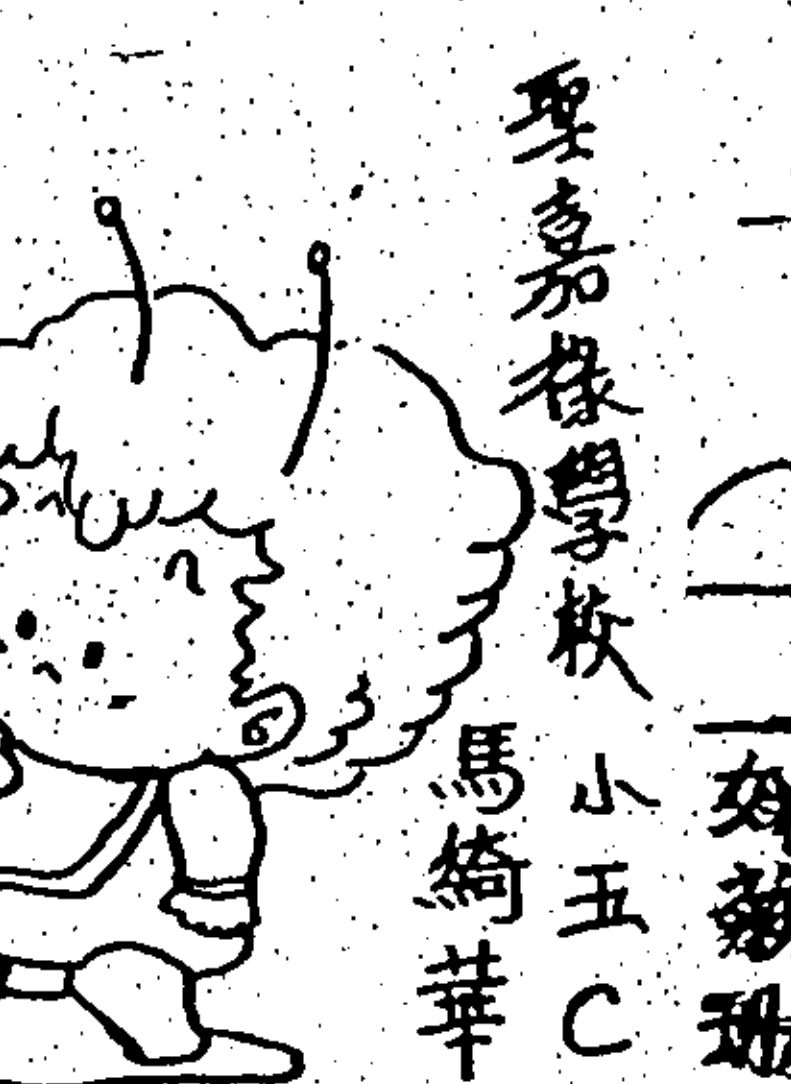 聖嘉祿學校
小五C
馬綺華